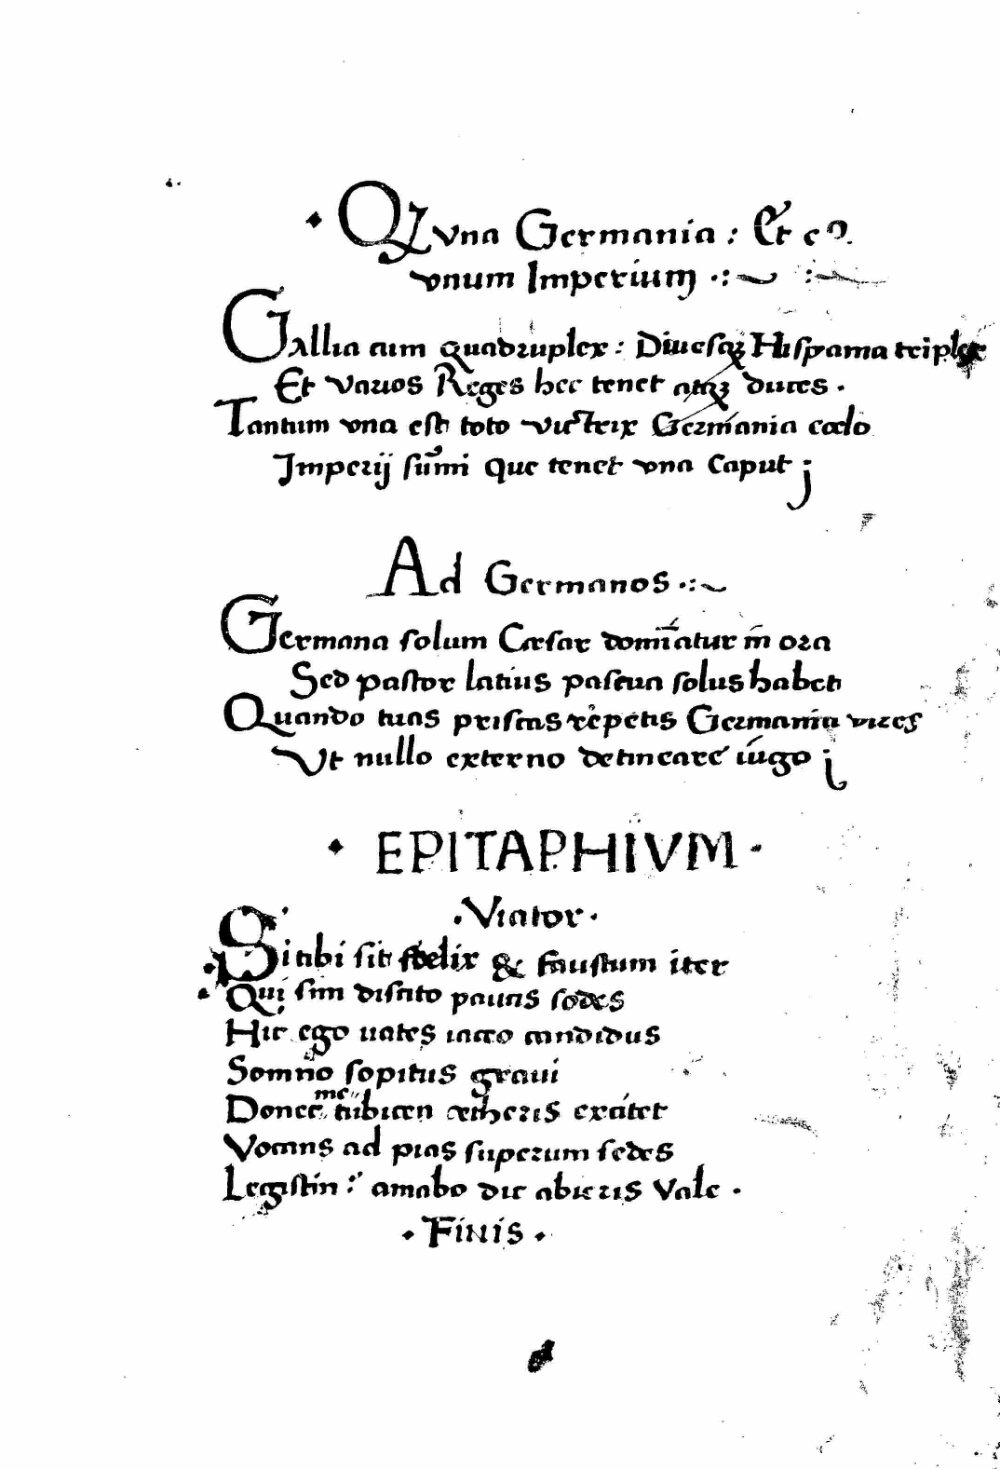 Qꝫ vna Germania : Et eo
vnum Imperium
Gallia cum quadruplex : Diuesqꝫ Hispania triplex
Et varios Reges hec tenet atqꝫ duces .
Tantum vna est toto victrix Germania cœlo
Imperij su͞mi que tenet vna Caput ;
Ad Germanos
Germana solum Cæsar domi͞atur in ora
Sed pastor latius pascua solus habet
Quando tuas priscas repetis Germania vices
Vt nullo externo detineare iugo ;
EPITAPHIVM
Viator
Si tibi sit fœlix & faustum iter
Qui sim discito paucis sodes
Hic ego uates iaceo candidus
Somno sopitus graui
Donec me tubicen ætheris excitet
Vocans ad pias superum sedes
Legistin : amabo dic abieris Vale .
Finis